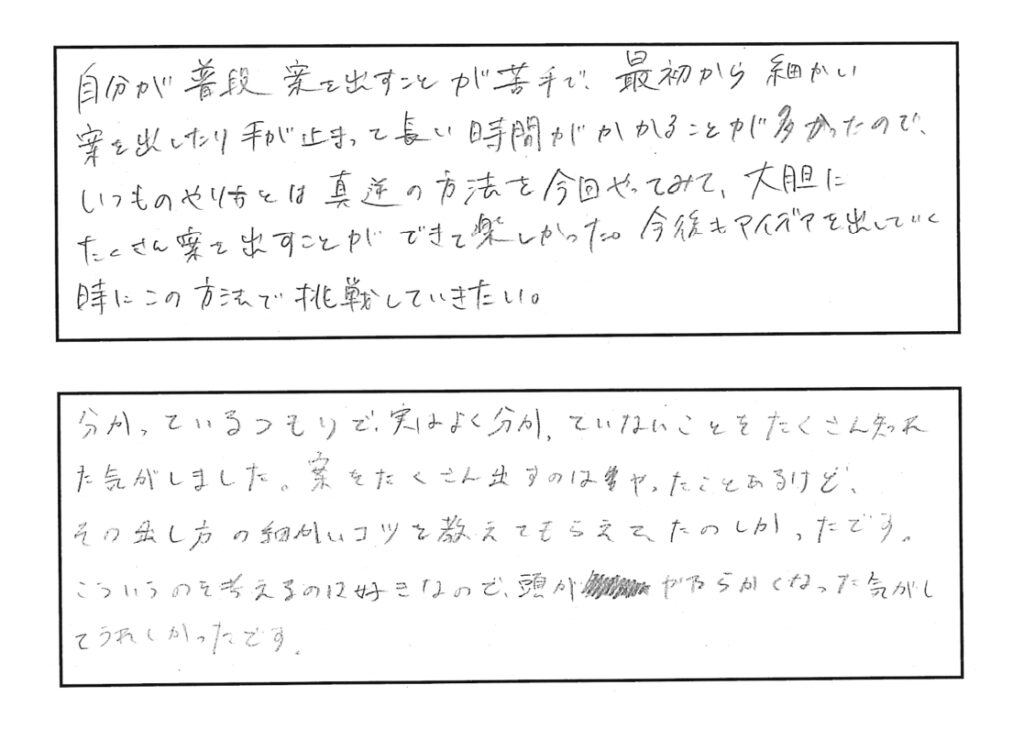 自分が普段案を出すことが苦手で、最初から細かい
案を出したり手が止まって長い時間がかかることが多かったので、
いつものやり方とは真逆の方法を今回やってみて、大胆に
たくさん案を出すことができて楽しかった。今後もアイデアを出していく
時にこの方法で挑戦していきたい。
分かっているつもりで、実はよく分かっていないことをたくさん知れ
た気がしました。案をたくさん出すのはやったことあるけど、
その出し方の細かいコツを教えてもらえて、たのしかったです。
こういうのを考えるのは好きなので、頭がやわらかくなった気がし
てうれしかったです。